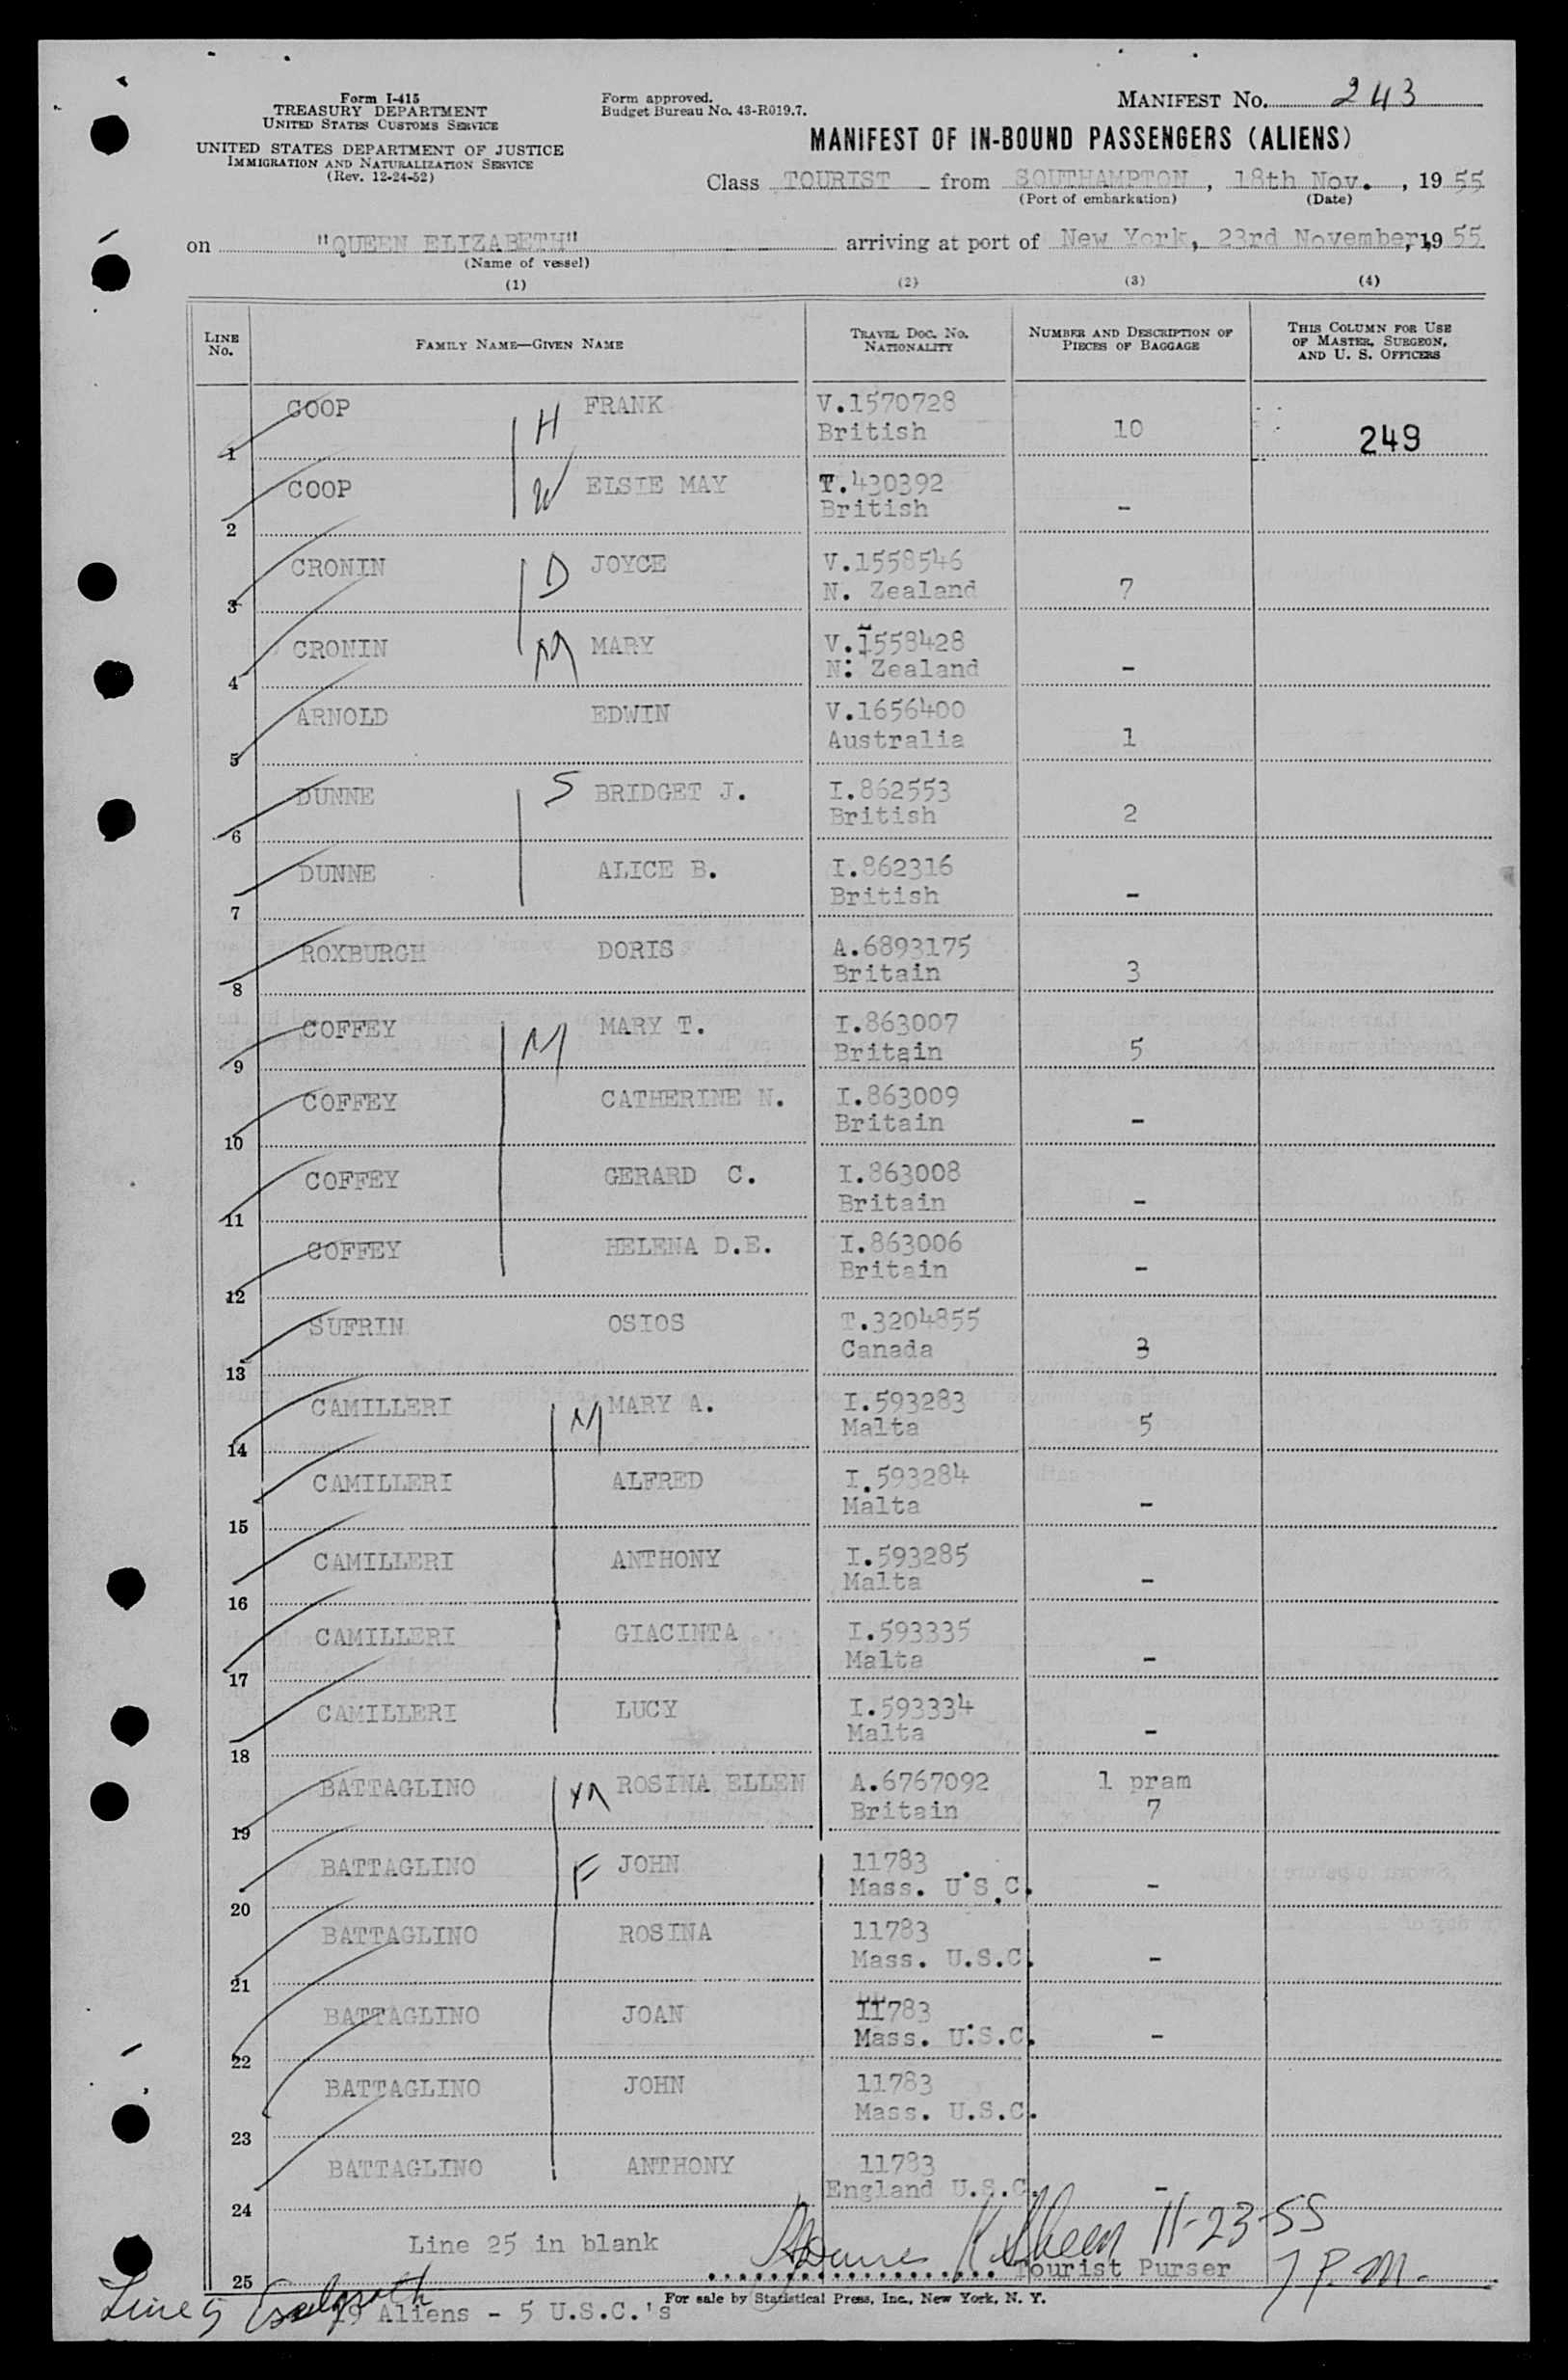 Form I-415
TREASURY DEPARTMENT
UNITED STATES CUSTOMS SERVICE
UNITED STATES DEPARTMENT OF JUSTICE
IMMIGRATION AND NATURALIZATION SERVICE
(Rev. 12-24-52)
Form approved.
Budget Bureau No. 43-R019.7.
MANIFEST No. 243
MANIFEST OF IN-BOUND PASSENGERS (ALIENS)
Class TOURIST from SOUTHAMPTON, 18th Nov., 1955
(Port of embarkation) (Date)
on "QUEEN ELIZABETH" arriving at port of New York, 23rd November, 1955
(Name of vessel)
(1) (2) (3) (4)
LINE No. FAMILY NAME—GIVEN NAME TRAVEL DOC. No. NATIONALITY NUMBER AND DESCRIPTION OF PIECES OF BAGGAGE THIS COLUMN FOR USE OF MASTER, SURGEON, AND U. S. OFFICERS
1 COOP H FRANK V.1570728 British 10 249
2 COOP W ELSIE MAY T.430392 British -
3 CRONIN D JOYCE V.1558546 N. Zealand 7
4 CRONIN M MARY V.1558428 N. Zealand -
5 ARNOLD EDWIN V.1656400 Australia 1
6 DUNNE S BRIDGET J. I.862553 British 2
7 DUNNE ALICE B. I.862316 British -
8 ROXBURGH DORIS A.6893175 Britain 3
9 COFFEY M MARY T. I.863007 Britain 5
10 COFFEY CATHERINE N. I.863009 Britain -
11 COFFEY GERARD C. I.863008 Britain -
12 COFFEY HELENA D.E. I.863006 Britain -
13 SUFRIN OSIOS T.3204855 Canada 3
14 CAMILLERI M MARY A. I.593283 Malta 5
15 CAMILLERI ALFRED I.593284 Malta -
16 CAMILLERI ANTHONY I.593285 Malta -
17 CAMILLERI GIACINTA I.593335 Malta -
18 CAMILLERI LUCY I.593334 Malta -
19 BATTAGLINO M ROSINA ELLEN A.6767092 Britain 1 pram 7
20 BATTAGLINO F JOHN 11783 Mass. U.S.C. -
21 BATTAGLINO ROSINA 11783 Mass. U.S.C. -
22 BATTAGLINO JOAN 11783 Mass. U.S.C. -
23 BATTAGLINO JOHN 11783 Mass. U.S.C.
24 BATTAGLINO ANTHONY 11783 England U.S.C. -
11-23-55
25 Line 25 in blank Tourist Purser 7 P.M.
For sale by Statistical Press, Inc., New York, N. Y.
Line 5
19 Aliens - 5 U.S.C.'s